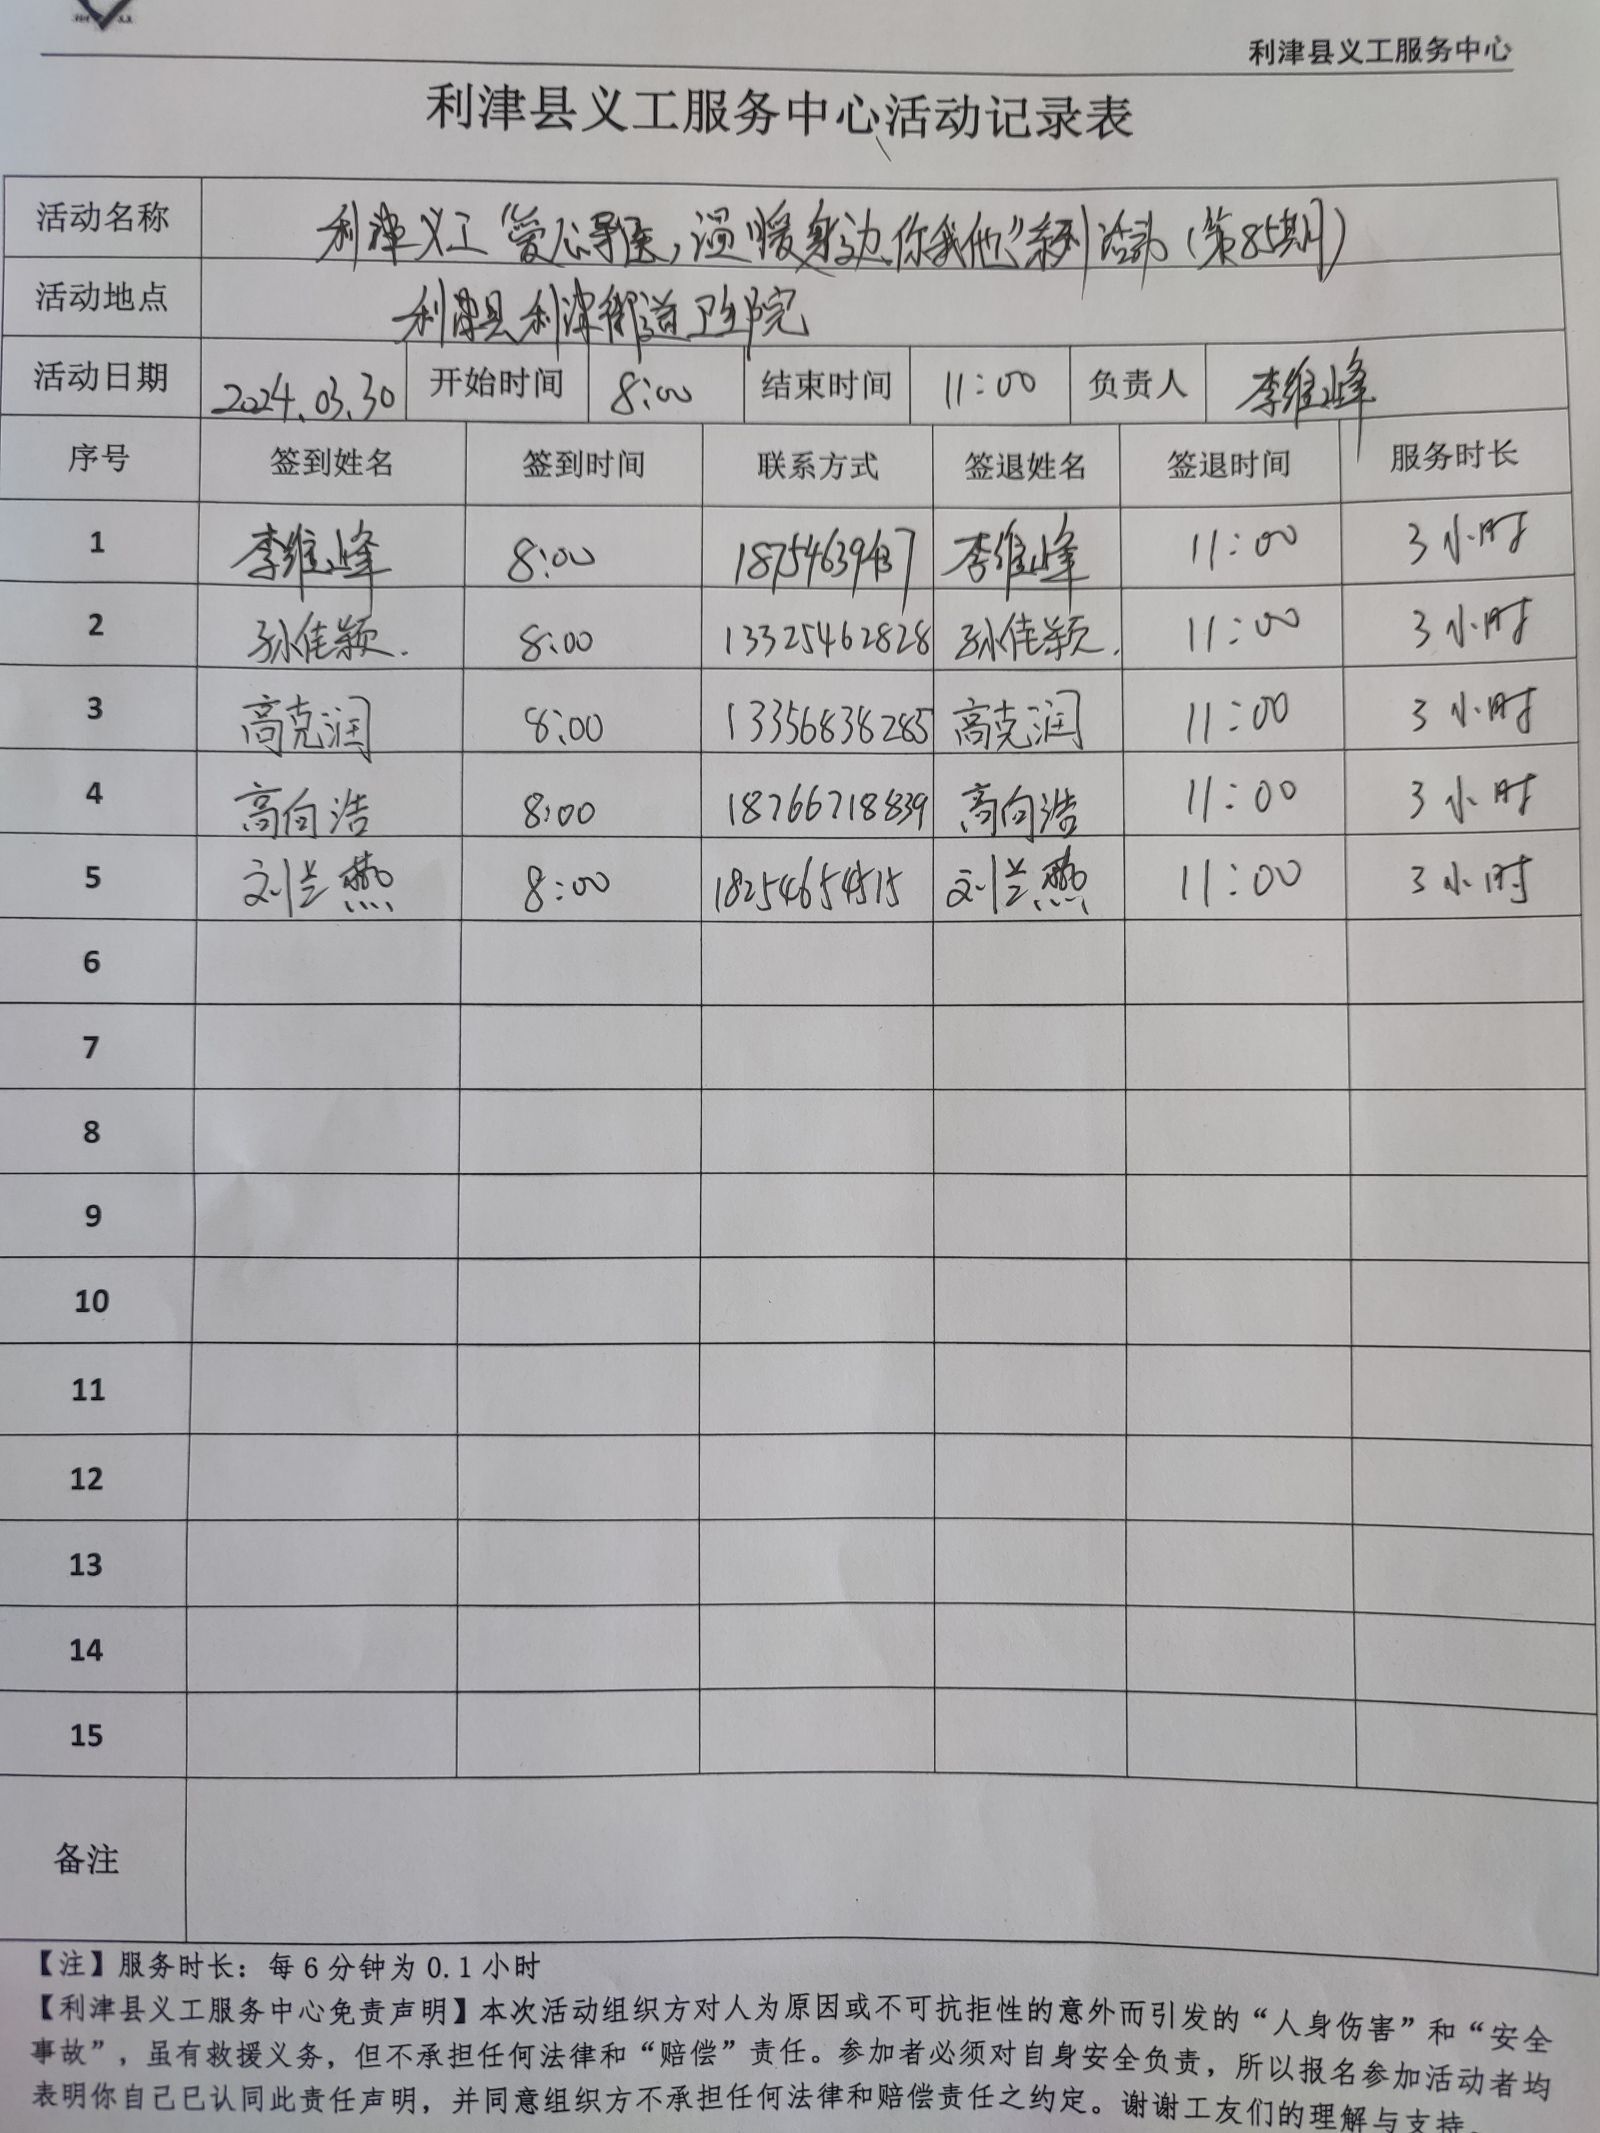 利津县义工服务中心
利津县义工服务中心活动记录表
活动名称 利津义工“爱心导医，温暖身边你我他”系列活动（第85期）
活动地点 利津县利津街道卫生院
活动日期 2024.03.30 开始时间 8:00 结束时间 11:00 负责人 李维峰
序号 签到姓名 签到时间 联系方式 签退姓名 签退时间 服务时长
1 李维峰 8:00 李维峰 11:00 3小时
2 孙佳颖. 8:00 13325462828 孙佳颖. 11:00 3小时
3 高克润 8:00 13356838285 高克润 11:00 3小时
4 高向浩 8:00 18766718839 高向浩 11:00 3小时
5 刘兰燕 8:00 18254654515 刘兰燕 11:00 3小时
6
7
8
9
10
11
12
13
14
15
备注
【注】服务时长：每6分钟为0.1小时
【利津县义工服务中心免责声明】本次活动组织方对人为原因或不可抗拒性的意外而引发的“人身伤害”和“安全
事故”，虽有救援义务，但不承担任何法律和“赔偿”责任。参加者必须对自身安全负责，所以报名参加活动者均
表明你自己已认同此责任声明，并同意组织方不承担任何法律和赔偿责任之约定。谢谢工友们的理解与支持。